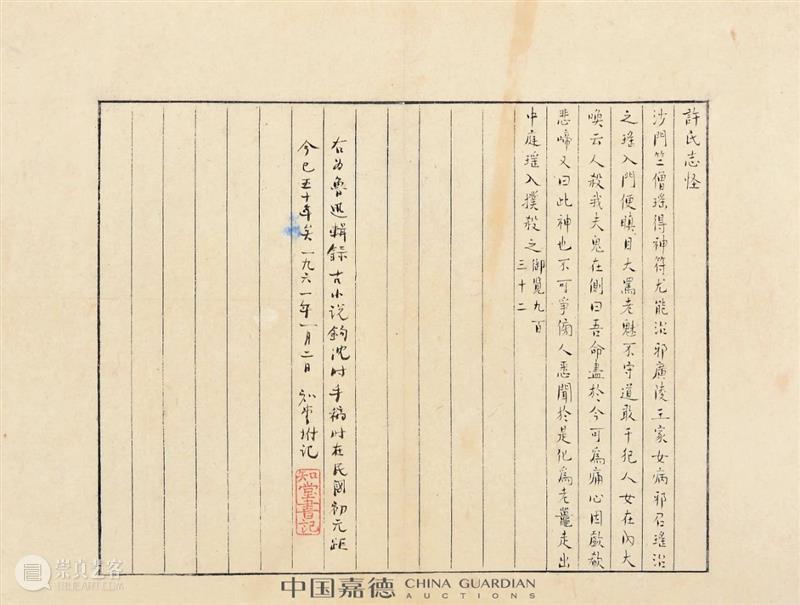 許氏志怪
沙門竺僧瑤得神符尤能治邪廣陵王家女病邪召瑤治
之瑤入門便瞋目大罵老魅不守道敢干犯人女在內大
喚云人殺我夫鬼在側曰吾命盡於今可為痛心因歔欷
悲啼又曰此神也不可爭傍人悉聞於是化為老鼉走出
中庭瑤入撲殺之御覽九百
三十二
右为魯迅輯錄古小说鈎沈时手稿时在民國初元距
今已五十年矣一九六一年一月二日 知堂附记
知堂書記
崇真艺客
中国嘉德 CHINA GUARDIAN
AUCTIONS